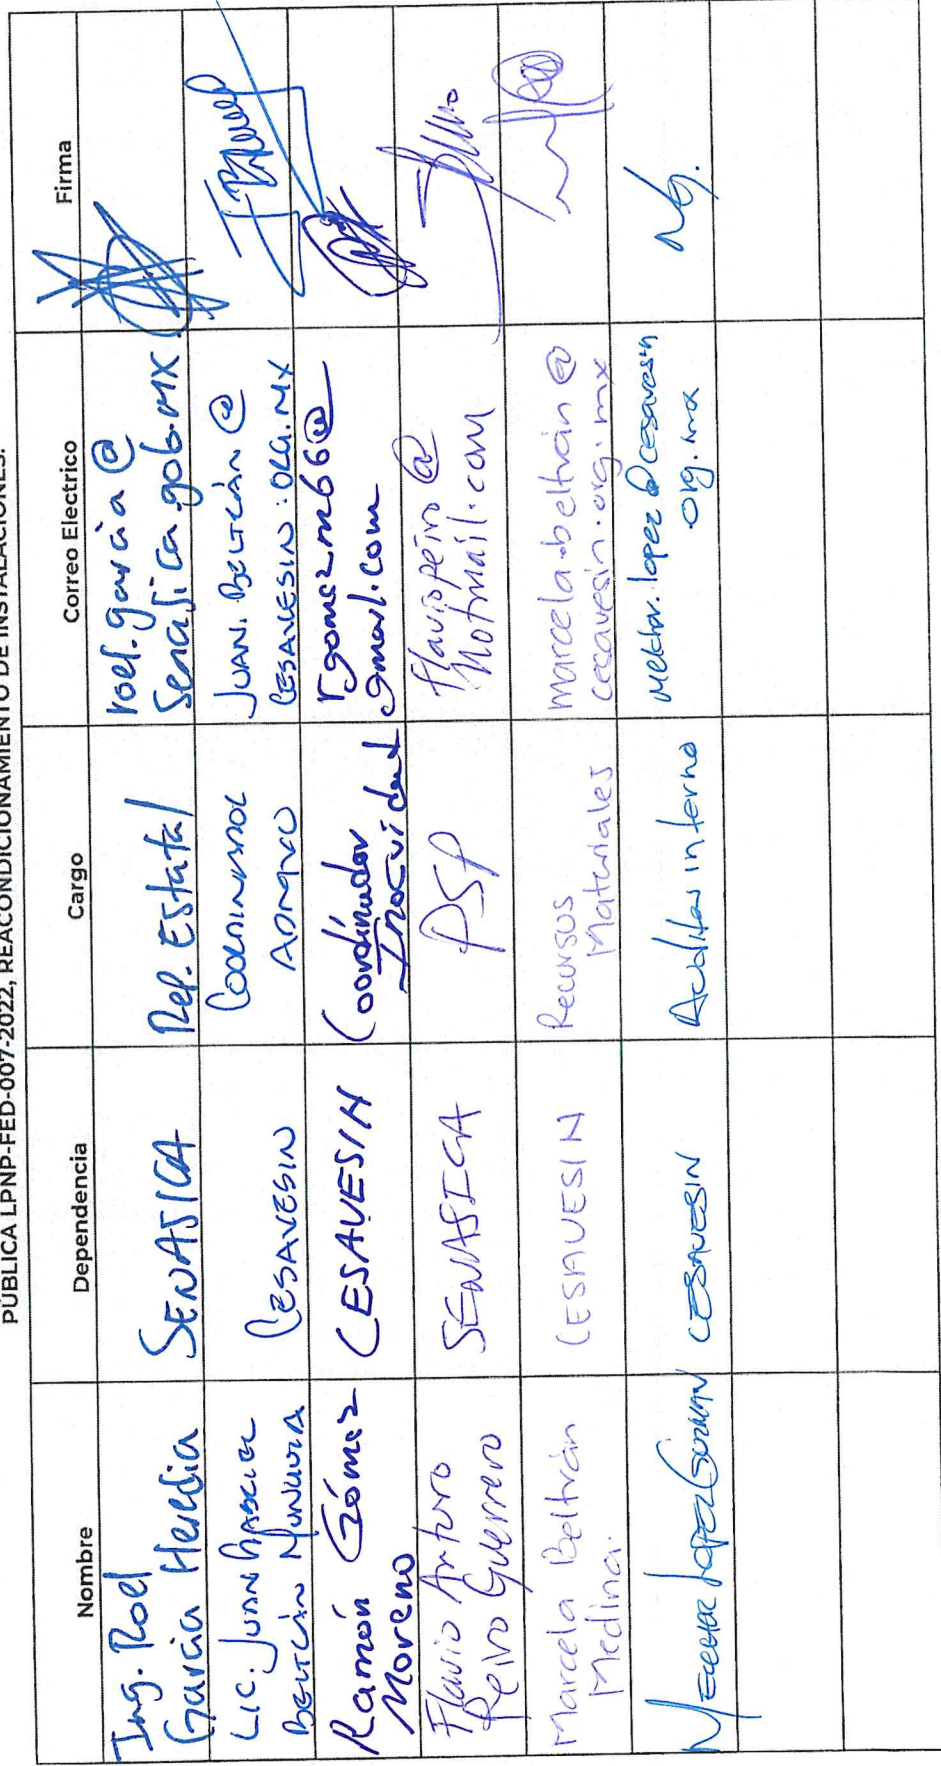 PÚBLICA LPNP-FED-007-2022, REACONDICIONAMIENTO DE INSTALACIONES.
Nombre Dependencia Cargo Correo Electrico Firma
Ing. Roel
García Heredia
SENASICA
Rep. Estatal
roel.garcia@
senasica.gob.mx
Lic. Juan Gabriel
Beltrán
CESAVESIN
Coordinador
Admvo
Juan.Beltrán@
CESAVESIN.ORG.MX
Ramón Gómez
Moreno
CESAVESIN
Coordinador
Inocuidad
rgomezm66@
gmail.com
Flavio Arturo
Peiro Guerrero
SENASICA
PSP
flaviopeiro@
hotmail.com
Marcela Beltrán
Medina.
CESAVESIN
Recursos
Materiales
marcela.beltran@
cesavesin.org.mx
Lopez
CESAVESIN
Auditor interno
melchor.lopez@cesavesin
org.mx